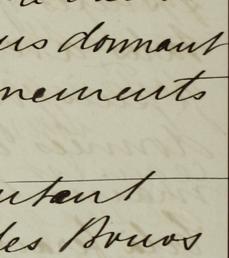 us donnant
nements
utant
des Bonos